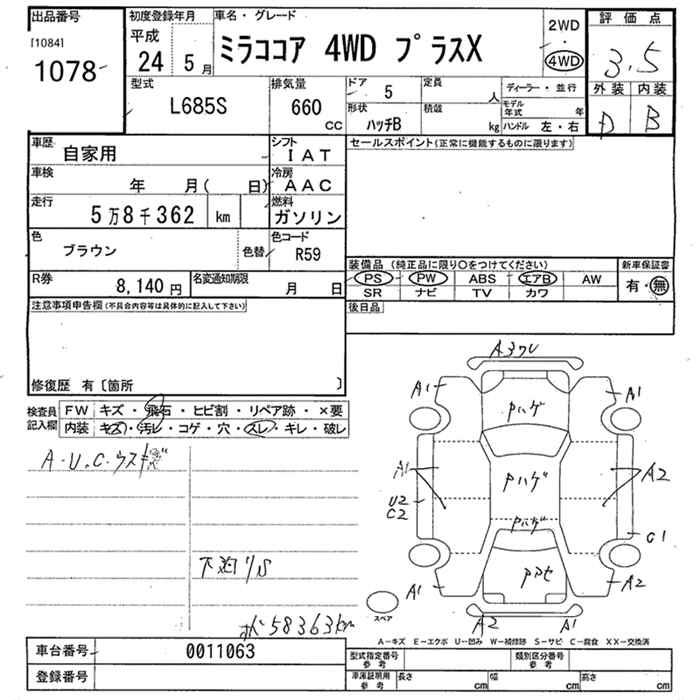 出品番号
[1084]
1078
初度登録年月
平成
24 5月
車名・グレード
ミラココア 4WD プラスX
2WD
4WD
評価点
3.5
外装 内装
D B
型式
L685S
排気量
660
cc
ドア
5
定員
人
形状
ハッチB
積載
kg
ディーラー・並行
モデル年式
年
ハンドル 左・右
車歴
自家用
シフト
IAT
車検
年 月( 日)
冷房
AAC
走行
5万8千362 km
燃料
ガソリン
色
ブラウン
色替
色コード
R59
R券
8,140円
名変通知期限
月 日
セールスポイント(正常に機能するものに限ります)
装備品(純正品に限り○をつけてください)
PS PW ABS エアB AW
SR ナビ TV カワ
新車保証書
有・無
後日品
注意事項申告欄(不具合内容等は具体的に記入して下さい)
修復歴 有〔箇所 〕
検査員記入欄
FW キズ・飛石・ヒビ割・リペア跡・×要
内装 キズ・汚レ・コゲ・穴・スレ・キレ・破レ
A・U.C.ウスキズ
下廻りS
メ58363km
A3ワレ
A1
A1
Pハゲ
A1
Pハゲ
A2
U2
C2
Pハゲ
C1
Pアセ
A1
A2
A2
A1
スペア
A-キズ E-エクボ U-凹み W-補修跡 S-サビ C-腐食 XX-交換済
車台番号
0011063
登録番号
型式指定番号
参考
類別区分番号
参考
車庫証明用
参考
長さ cm
幅 cm
高さ cm